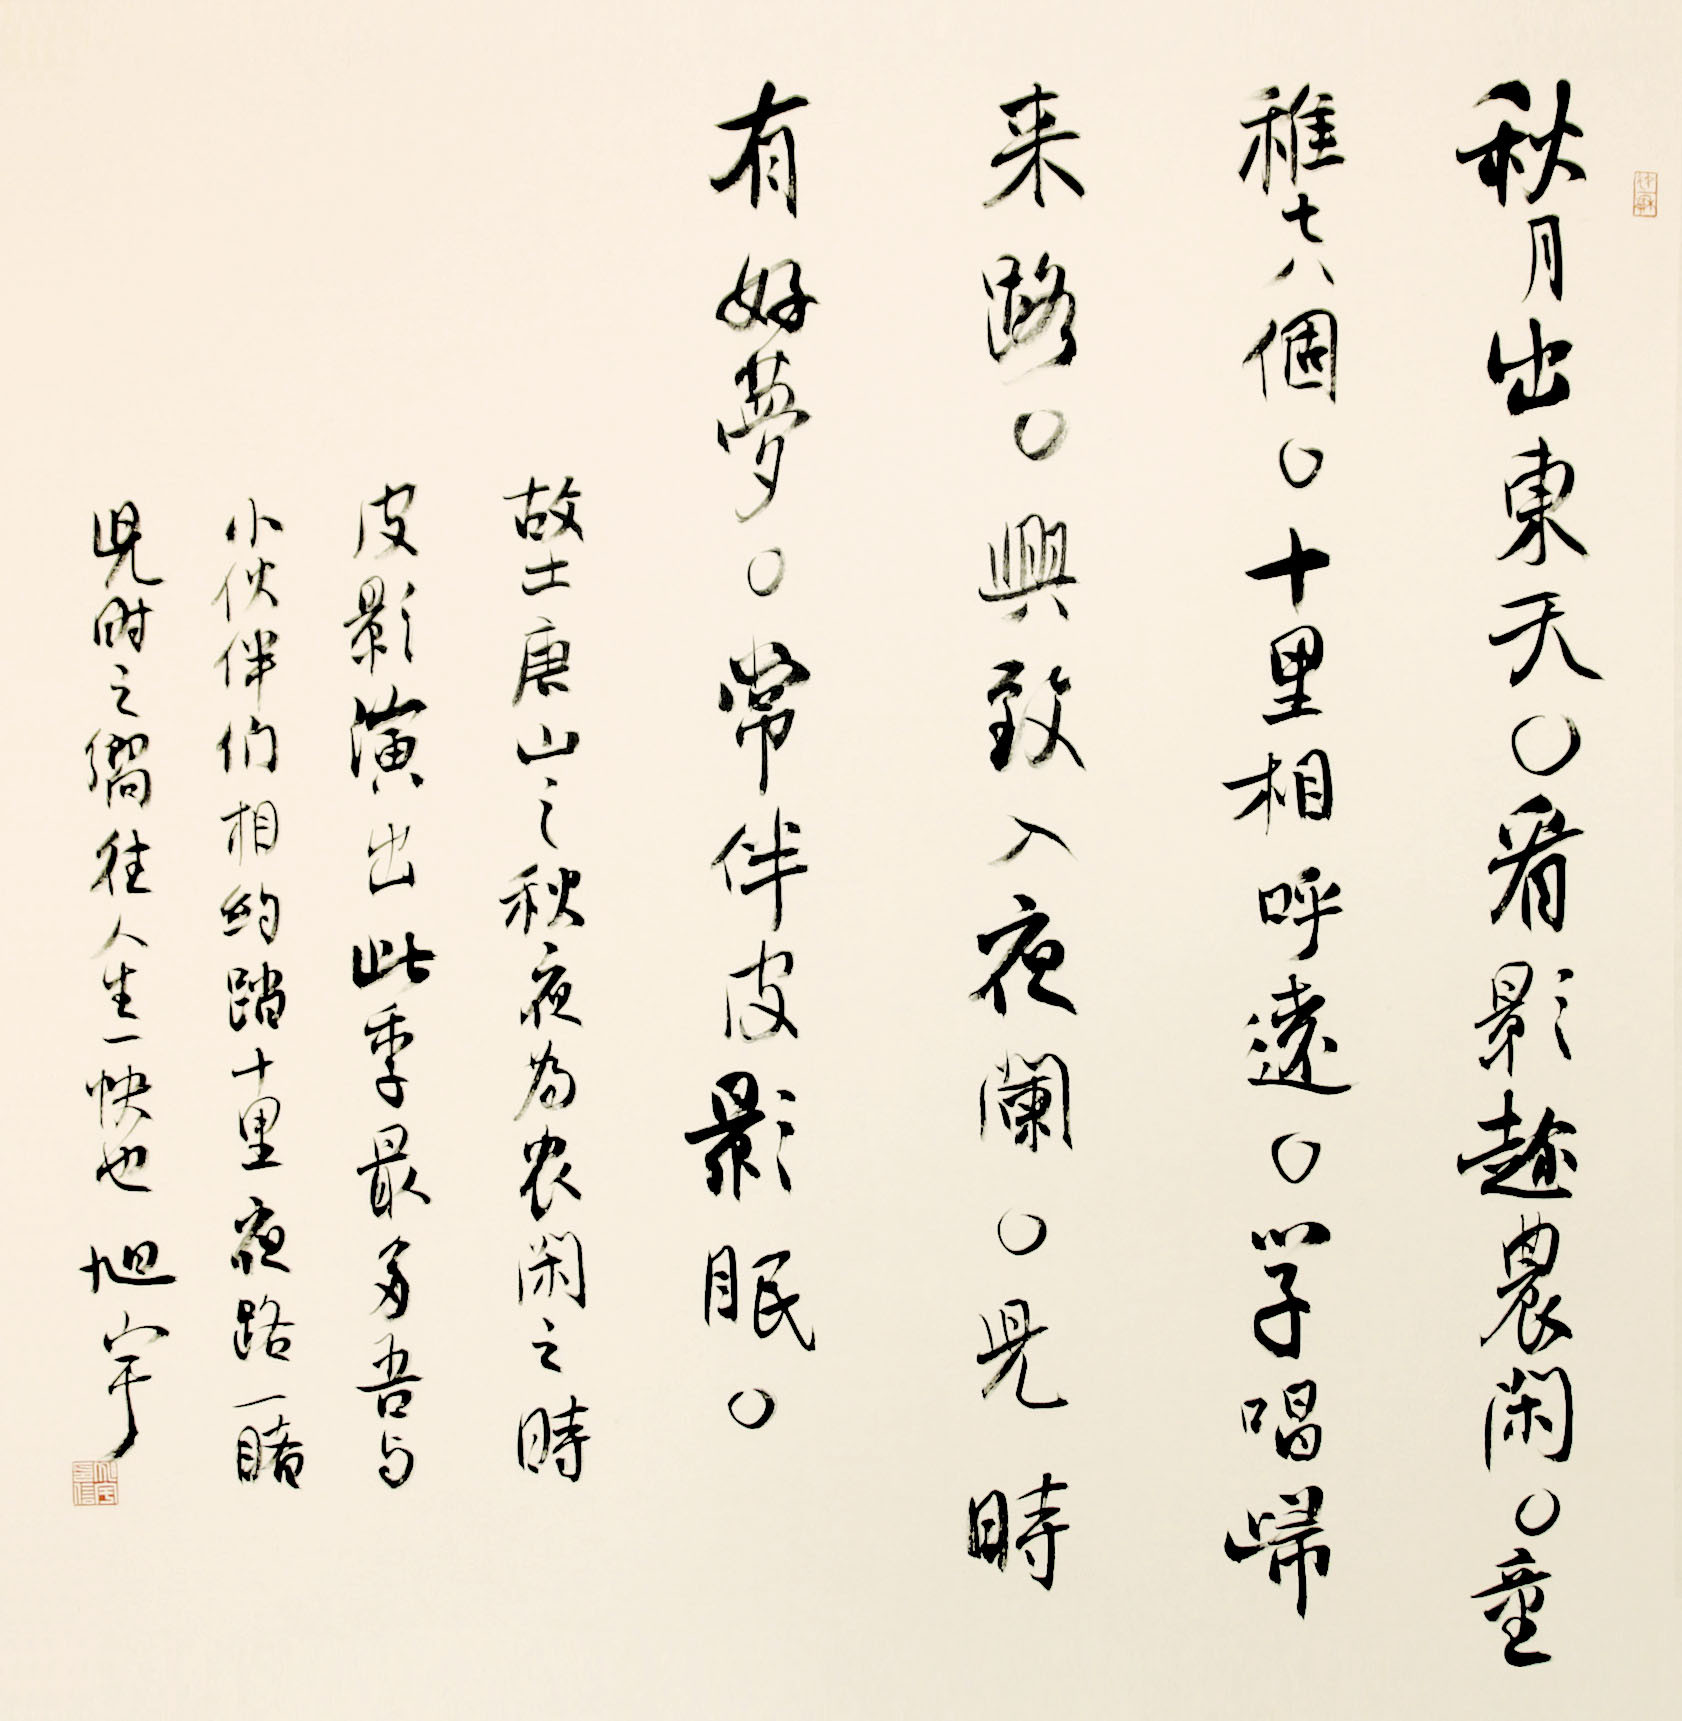 秋月出東天○看影趁農閑○童
稚七八個○十里相呼遠○学唱歸
来路○興致入夜闌○児時
有好夢○常伴皮影眠○
故土唐山之秋夜为农闲之時
皮影演出此季最多吾与
小伙伴们相约踏十里夜路一睹
児时之嚮往人生一快也 旭宇